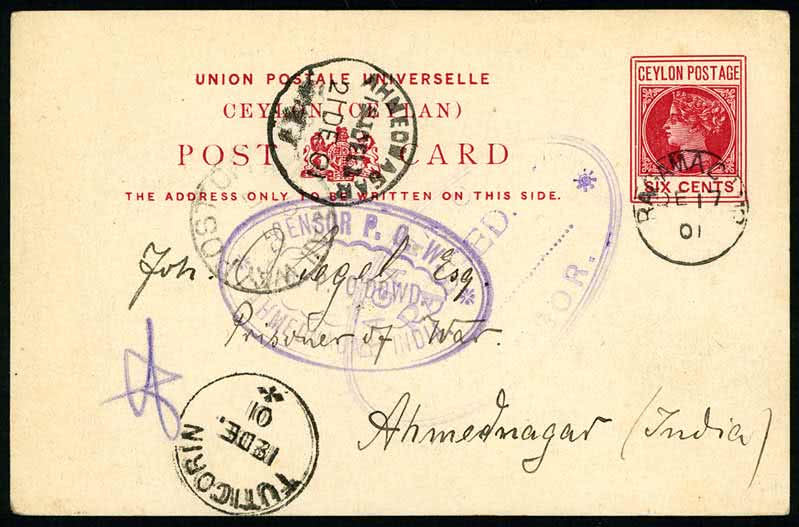 UNION POSTALE UNIVERSELLE
CEYLON (CEYLAN)
POST CARD
THE ADDRESS ONLY TO BE WRITTEN ON THIS SIDE.
CEYLON POSTAGE
SIX CENTS
AHMEDNAGAR
21 DE 01
DE 17
01
CENSOR P. O. W.
Joh. Siegel Esq.
Prisoner of War.
Ahmednagar (India)
TUTICORIN
18 DE.
01